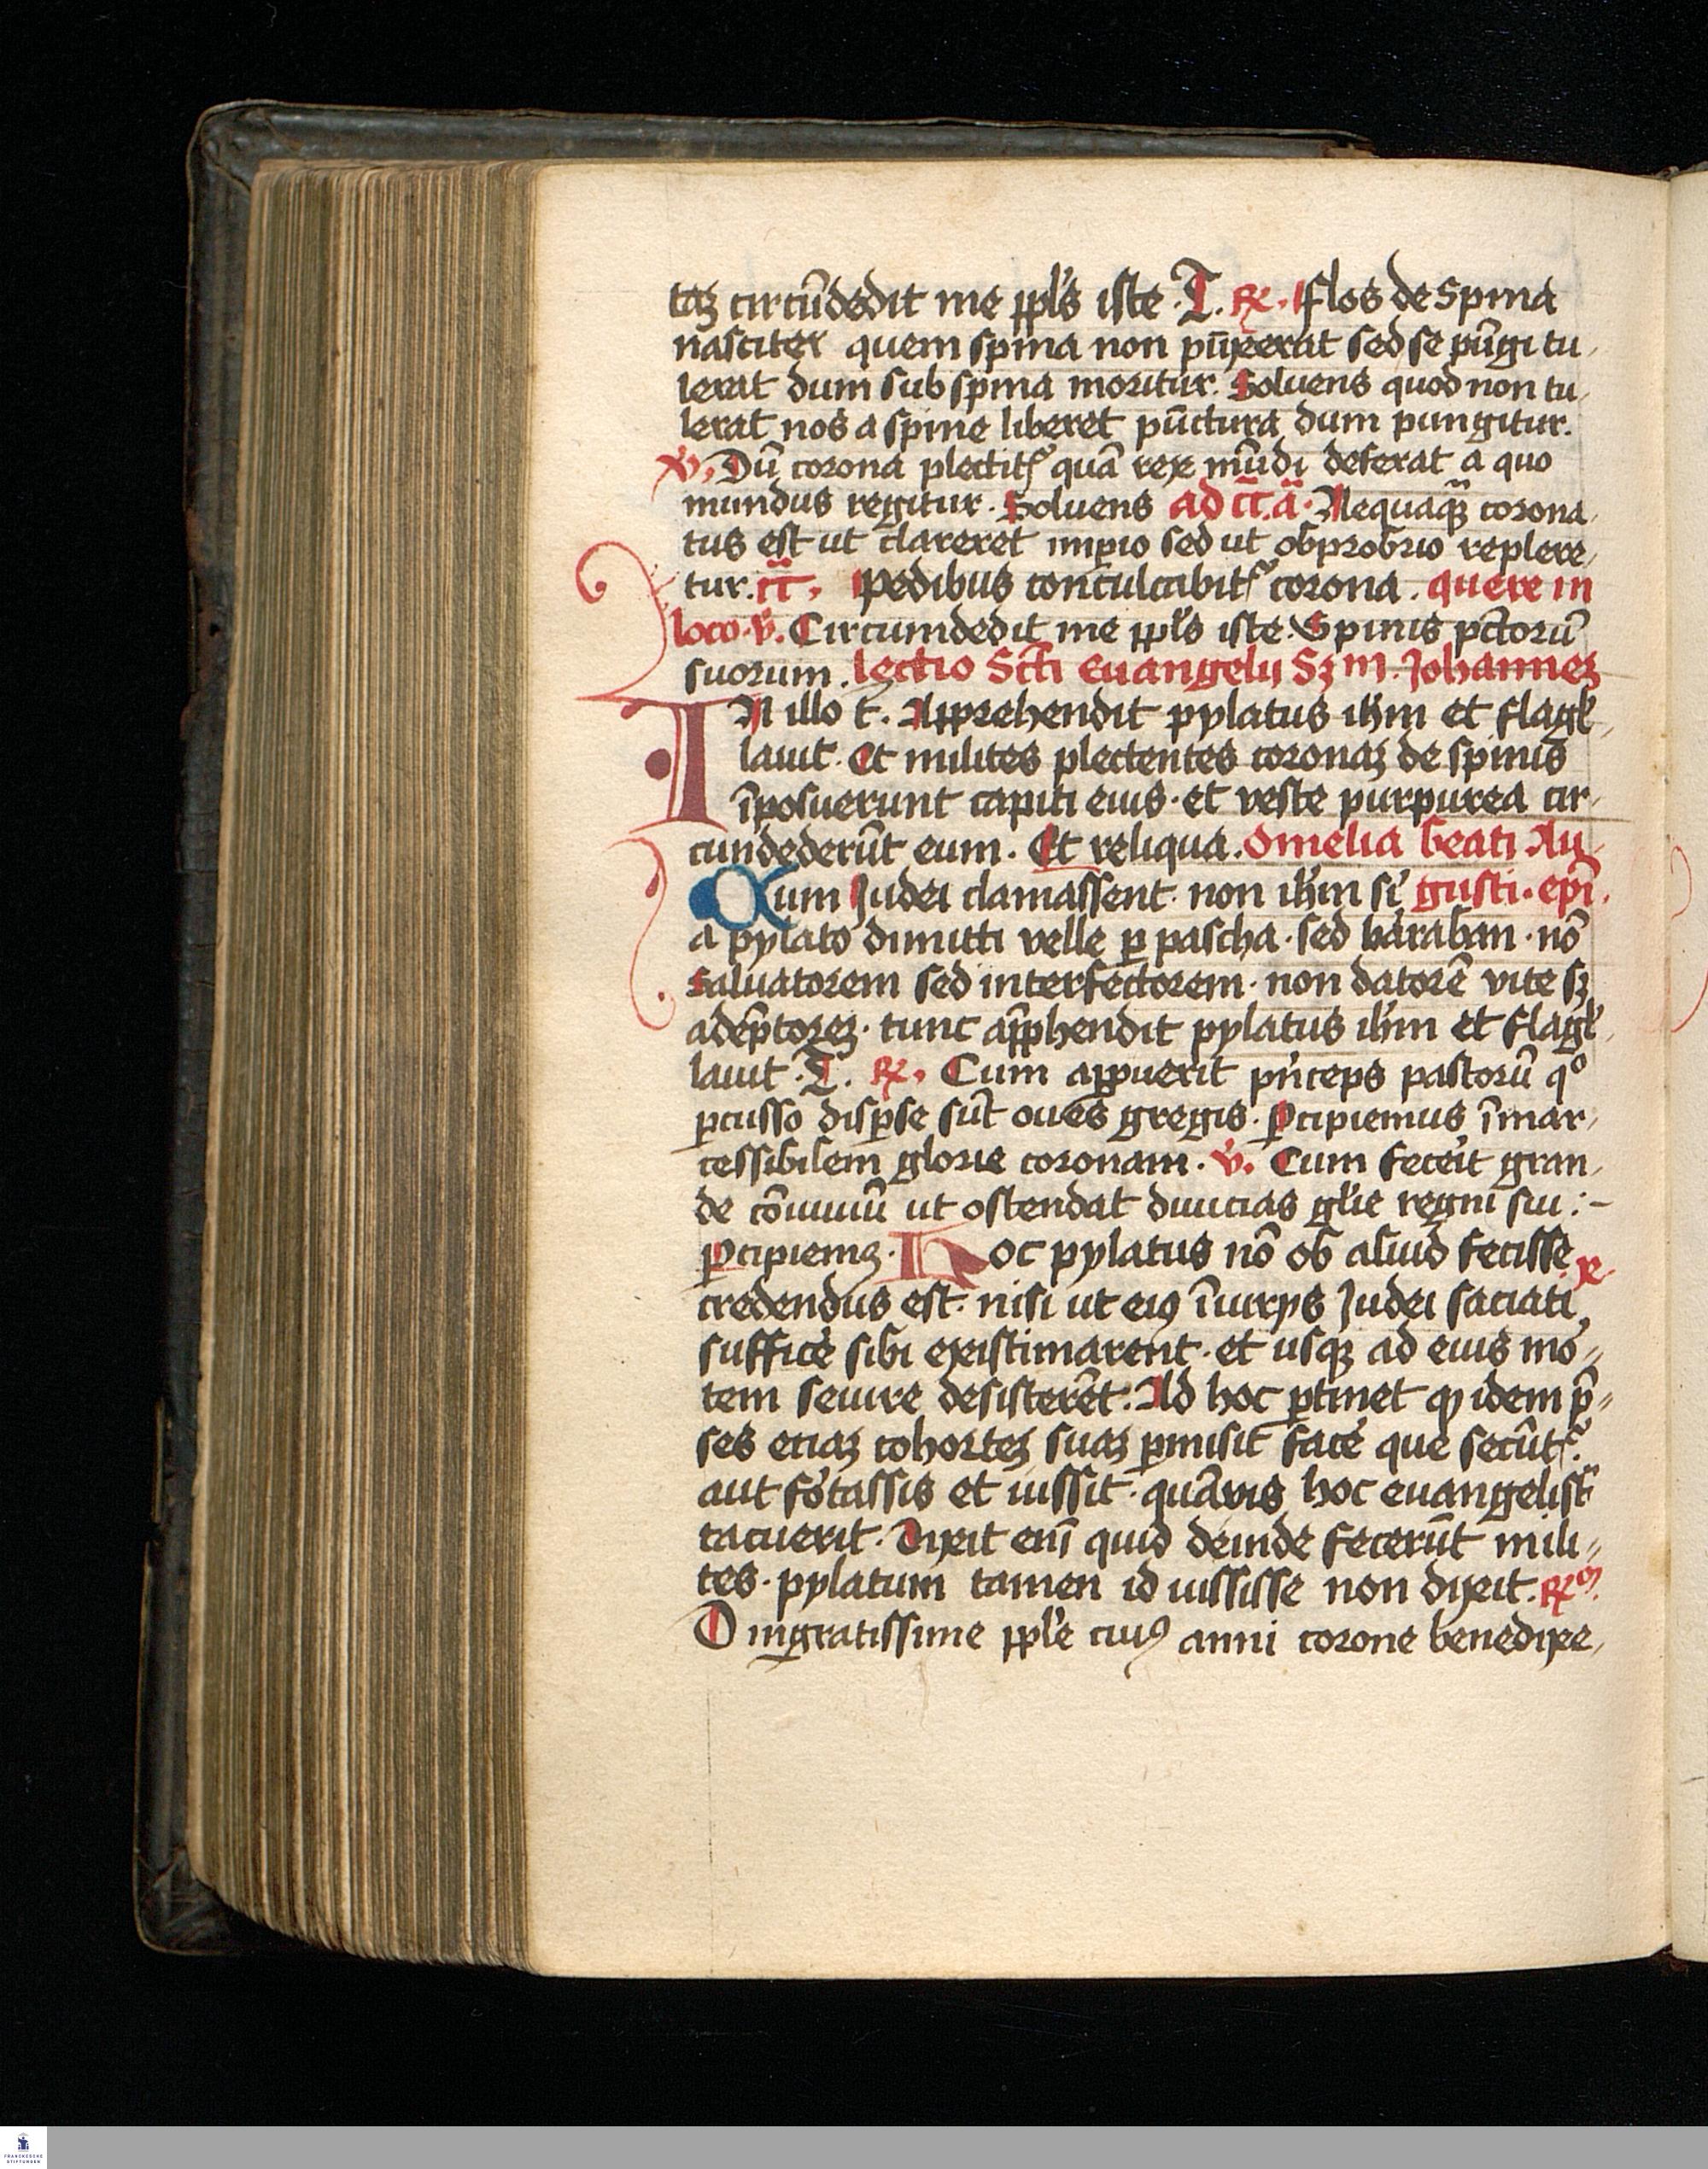 taꝫ circūdedit me ppl's iste · T. R̷. flos de spina
nasciter quem spina non pūxerat sed se pūgi tu
lerat dum sub spina moritur. Soluens quod non tu
lerat nos a spine liberet pūctura dum pungitur.
v̓. Dū corona plectit᷑ quā rex mūdi deferat a quo
mundus regitur. Soluens ad ca͞ta. Nequaqꝫ corona
tus est ut clareret imꝑio sed ut obprobrio replere
tur. ca͞t. Pedibus conculcabit᷑ corona. quere in
loco. v̓. Circumdedit me ppl's iste. Spinis pc̄torū
suorum. lectio Sc̄ti euangelij Sꝫm. Johanneꝫ
IN illo t̄. Apprehendit pylatus ih̄m et flagl̓
lauit. Et milites plectentes coronaꝫ de spinis
īposuerunt capiti eius. et veste purpurea cir
cundederūt eum. Et reliqua. Omelia beati Au
Qum Judei clamassent. non ih̄m si᷑ gusti. epi̅.
a pylato dimitti velle ꝑ pascha. sed baraban. nō
saluatorem sed interfectorem. non datorē vite sꝫ
adēptoreꝫ. tunc app̄hendit pylatus ih̄m et flagl̓
lauit. T. R̷. Cum appuerit pn̓ceps pastorū qͦ
ꝑcusso disꝑse sūt oues gregis. Ꝑcipiemus īmar
cessibilem glorie coronam. v̓. Cum fecei᷑t gran
de cōuiuiū ut ostendat diuicias gl̓ie regni sui :-
ꝑcipiemꝫ. Hoc pylatus nō ob aliud fecisse
credendus est. nisi ut eiꝯ īiurijs Judei saciati
suffice᷑ sibi existimarent. et usqꝫ ad eius mo᷑
tem seuire desisterēt. Ad hoc ꝑtinet ꝙ idem p̄
ses eciaꝫ cohorteꝫ suaꝫ ꝑmisit face᷑ que secūt᷑.
aut fo᷑tassis et iussit. quāvis hoc euangelist̓
tacuerit. Dixit eni̅ quid deinde fecerūt mili
tes. pylatum tamen id iussisse non dixit. R̷ꝰ
O ingratissime ppl̓e cuiꝯ anni corone benedixe